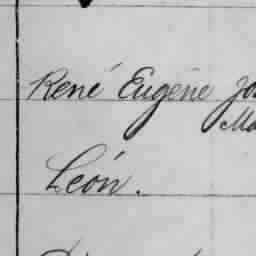 René Eugène Jo
Ma
León.